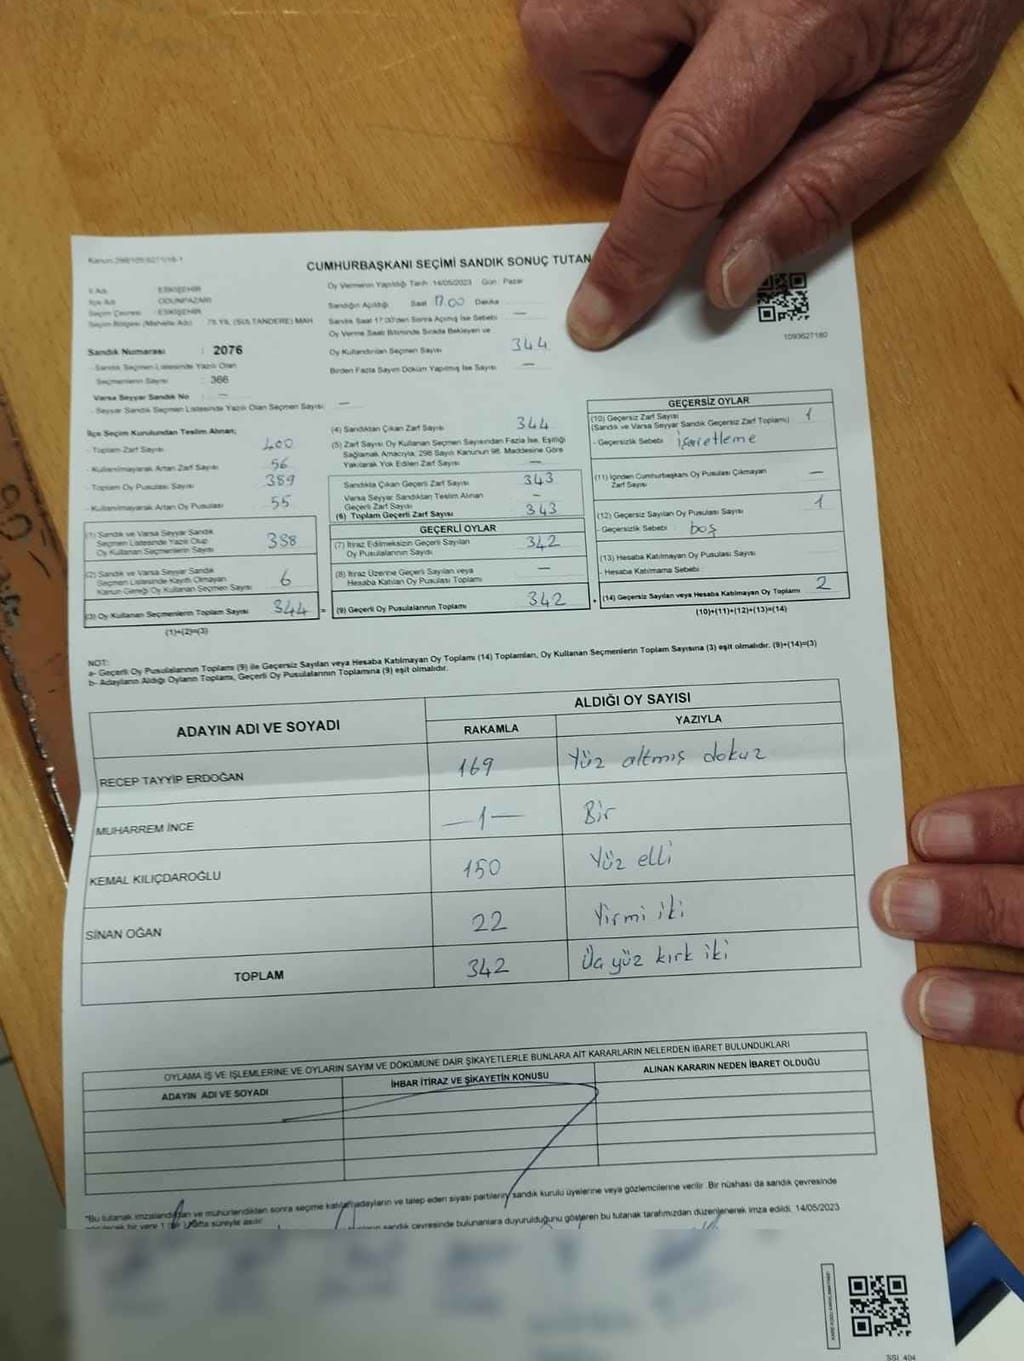 Kanun:298/105-6271/16-1
CUMHURBAŞKANI SEÇİMİ SANDIK SONUÇ TUTAN
İl Adı ESKİŞEHİR
İlçe Adı ODUNPAZARI
Seçim Çevresi ESKİŞEHİR
Seçim Bölgesi (Mahalle Adı) 75.YIL (SULTANDERE) MAH
Sandık Numarası : 2076
- Sandık Seçmen Listesinde Yazılı Olan
Seçmenlerin Sayısı : 366
Varsa Seyyar Sandık No : —
- Seyyar Sandık Seçmen Listesinde Yazılı Olan Seçmen Sayısı : —
Oy Vermenin Yapıldığı Tarih :14/05/2023 Gün : Pazar
Sandığın Açıldığı Saat 17.00 Dakika
Sandık Saat 17:00'den Sonra Açılmış İse Sebebi —
Oy Verme Saati Bitiminde Sırada Bekleyen ve
Oy Kullandırılan Seçmen Sayısı 344
Birden Fazla Sayım Döküm Yapılmış İse Sayısı —
1093627180
İlçe Seçim Kurulundan Teslim Alınan;
- Toplam Zarf Sayısı 400
- Kullanılmayarak Artan Zarf Sayısı 56
- Toplam Oy Pusulası Sayısı 389
- Kullanılmayarak Artan Oy Pusulası 55
(1) Sandık ve Varsa Seyyar Sandık
Seçmen Listesinde Yazılı Olup
Oy Kullanan Seçmenlerin Sayısı 338
(2) Sandık ve Varsa Seyyar Sandık
Seçmen Listesinde Kayıtlı Olmayan
Kanun Gereği Oy Kullanan Seçmen Sayısı 6
(3) Oy Kullanan Seçmenlerin Toplam Sayısı 344 =
(1)+(2)=(3)
(4) Sandıktan Çıkan Zarf Sayısı 344
(5) Zarf Sayısı Oy Kullanan Seçmen Sayısından Fazla İse, Eşitliği
Sağlamak Amacıyla, 298 Sayılı Kanunun 98. Maddesine Göre
Yakılarak Yok Edilen Zarf Sayısı —
Sandıkta Çıkan Geçerli Zarf Sayısı 343
Varsa Seyyar Sandıktan Teslim Alınan
Geçerli Zarf Sayısı —
(6) Toplam Geçerli Zarf Sayısı 343
GEÇERLİ OYLAR
(7) İtiraz Edilmeksizin Geçerli Sayılan
Oy Pusulalarının Sayısı 342
(8) İtiraz Üzerine Geçerli Sayılan veya
Hesaba Katılan Oy Pusulası Toplamı —
(9) Geçerli Oy Pusulalarının Toplamı 342 +
GEÇERSİZ OYLAR
(10) Geçersiz Zarf Sayısı
(Sandık ve Varsa Seyyar Sandık Geçersiz Zarf Toplamı) 1
- Geçersizlik Sebebi : işaretleme
(11) İçinden Cumhurbaşkanı Oy Pusulası Çıkmayan
Zarf Sayısı —
(12) Geçersiz Sayılan Oy Pusulası Sayısı 1
- Geçersizlik Sebebi : boş
(13) Hesaba Katılmayan Oy Pusulası Sayısı
- Hesaba Katılmama Sebebi :
(14) Geçersiz Sayılan veya Hesaba Katılmayan Oy Toplamı 2
(10)+(11)+(12)+(13)=(14)
NOT:
a- Geçerli Oy Pusulalarının Toplamı (9) ile Geçersiz Sayılan veya Hesaba Katılmayan Oy Toplamı (14) Toplamları, Oy Kullanan Seçmenlerin Toplam Sayısına (3) eşit olmalıdır. (9)+(14)=(3)
b- Adayların Aldığı Oyların Toplamı, Geçerli Oy Pusulalarının Toplamına (9) eşit olmalıdır.
ADAYIN ADI VE SOYADI ALDIĞI OY SAYISI
RAKAMLA YAZIYLA
RECEP TAYYİP ERDOĞAN 169 Yüz altmış dokuz
MUHARREM İNCE —1— Bir
KEMAL KILIÇDAROĞLU 150 Yüz elli
SİNAN OĞAN 22 Yirmi iki
TOPLAM 342 Üç yüz kırk iki
OYLAMA İŞ VE İŞLEMLERİNE VE OYLARIN SAYIM VE DÖKÜMÜNE DAİR ŞİKAYETLERLE BUNLARA AİT KARARLARIN NELERDEN İBARET BULUNDUKLARI
ADAYIN ADI VE SOYADI İHBAR İTİRAZ VE ŞİKAYETİN KONUSU ALINAN KARARIN NEDEN İBARET OLDUĞU
"Bu tutanak imzalandıktan ve mühürlendikten sonra seçime katılan adayların ve talep eden siyasi partilerin sandık kurulu üyelerine veya gözlemcilerine verilir. Bir nüshası da sandık çevresinde
görülecek bir yere 1 bir hafta süreyle asılır. sandık çevresinde bulunanlara duyurulduğunu gösteren bu tutanak tarafımızdan düzenlenerek imza edildi. 14/05/2023
SSİ 404